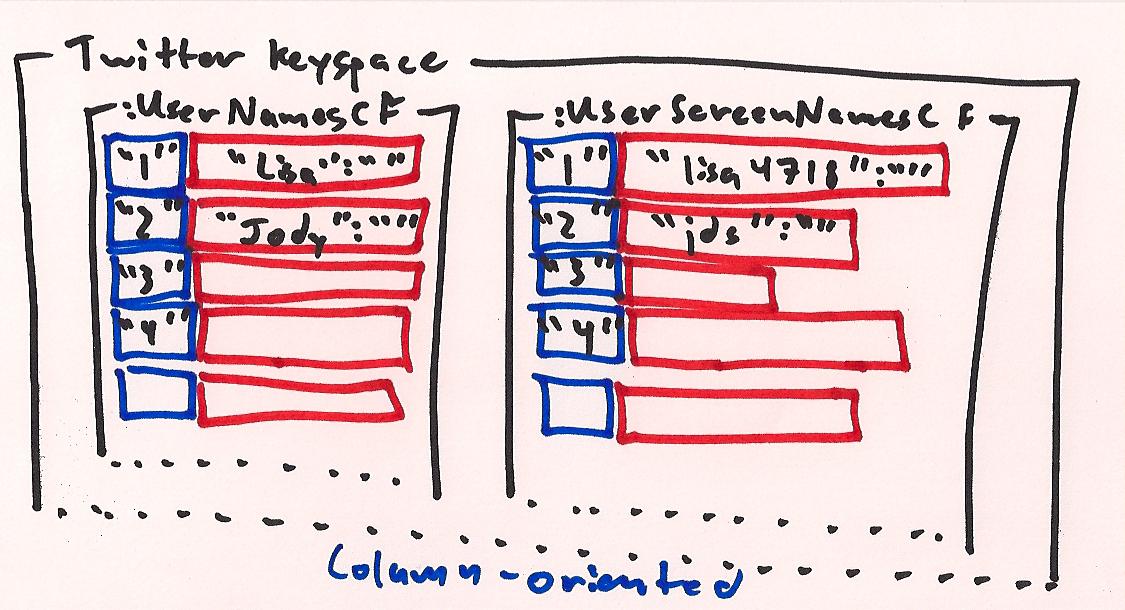 Twitter Keyspace
:UserNamesCF
"1" "Lisa":""
"2" "Jody":""
"3"
"4"
:UserScreenNamesCF
"1" "lisa4718":""
"2" "jds":""
"3"
"4"
Column-oriented